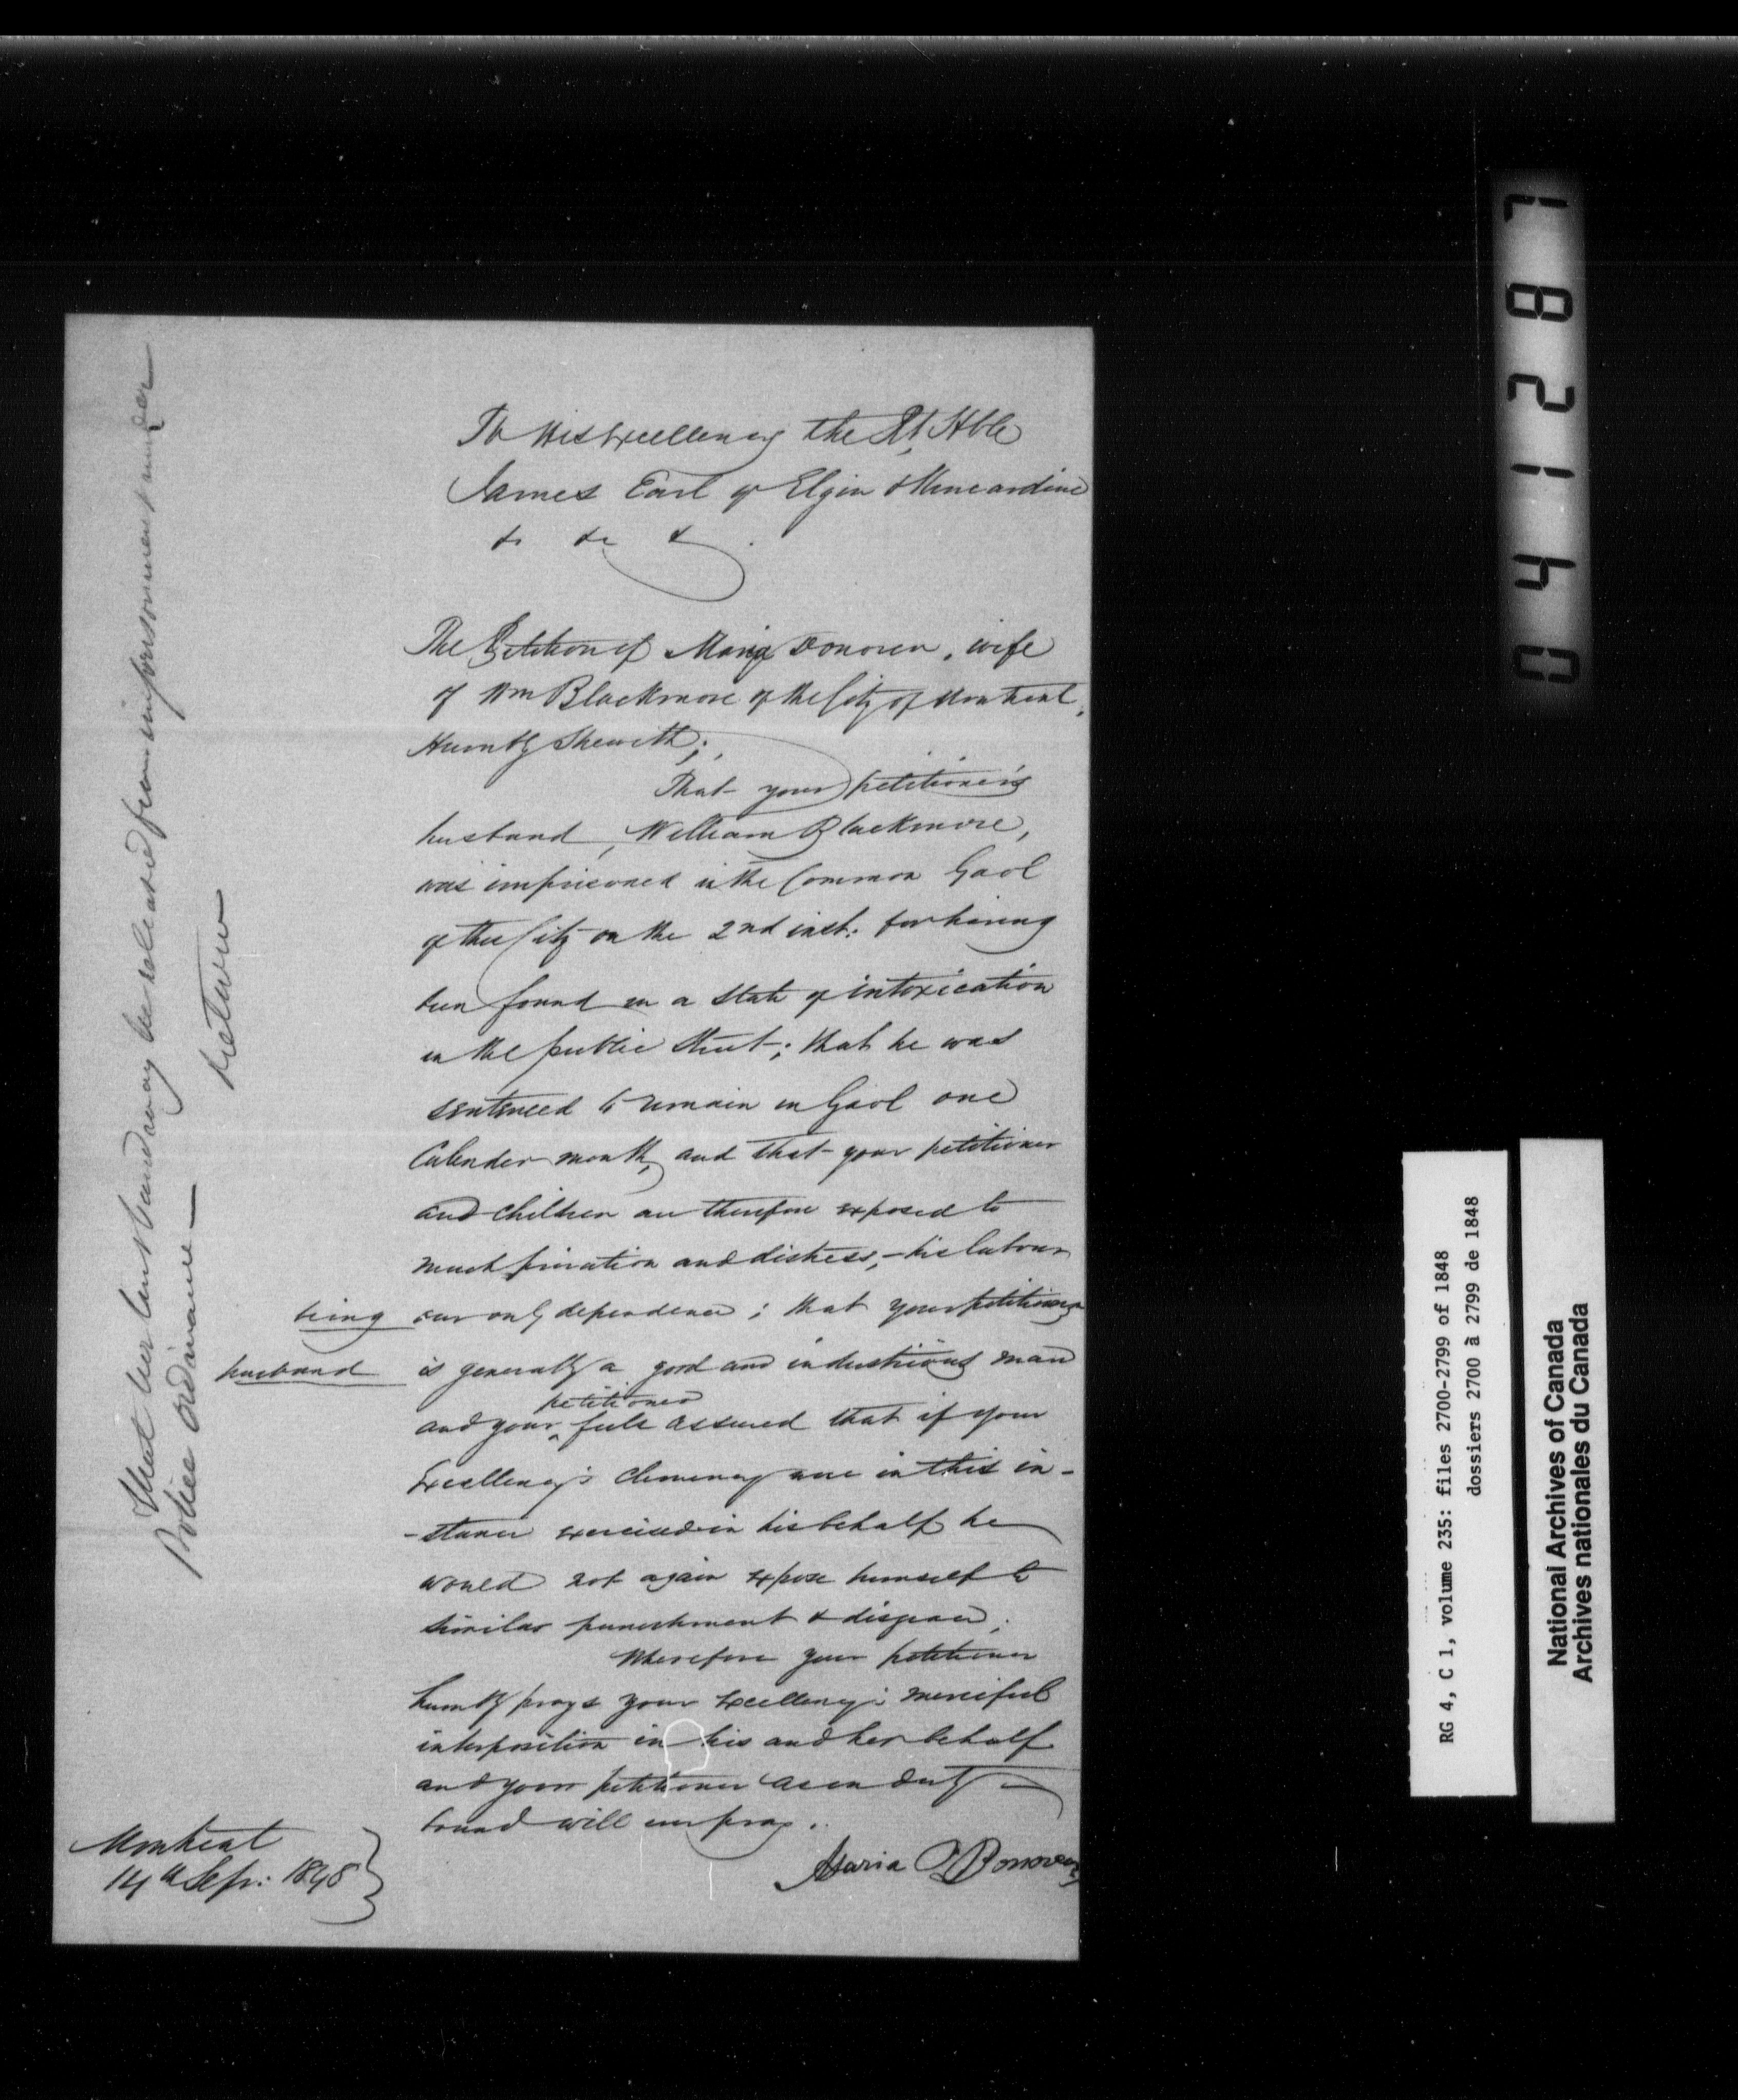 To His Excellency the Rt. Hble
James Earl of Elgin & Kincardine
&c &c &c
The Petition of Maria Donoven, wife
of Wm Blackmore of the City of Montreal,
Humbly Sheweth;
That your petitioner's
husband, William Blackmore,
was imprisoned in the Common Gaol
of this City on the 2nd inst: for having
been found in a state of intoxication
in the public street; that he was
sentenced to remain in Gaol one
Calender month, and that your petitioner
and children are therefore exposed to
much privation and distress,- his labour
being our only dependence; that your petitioner's
husband is generally a good and industrious man
and your petitioner feels assured that if your
Excellency's clemency were in this in-
-stance exercised in his behalf he
would not again expose himself to
similar punishment & disgrace.
Wherefore your petitioner
humbly prays your Excellency's merciful
interposition in his and her behalf
and your petitioner as in duty
bound will ever pray..
Maria Donoven
Montreal
14th Sepr: 1848
That her husband may be released from imprisonment under
Police Ordinance —
return
041287
RG 4, C 1, volume 235: files 2700-2799 of 1848
dossiers 2700 à 2799 de 1848
National Archives of Canada
Archives nationales du Canada